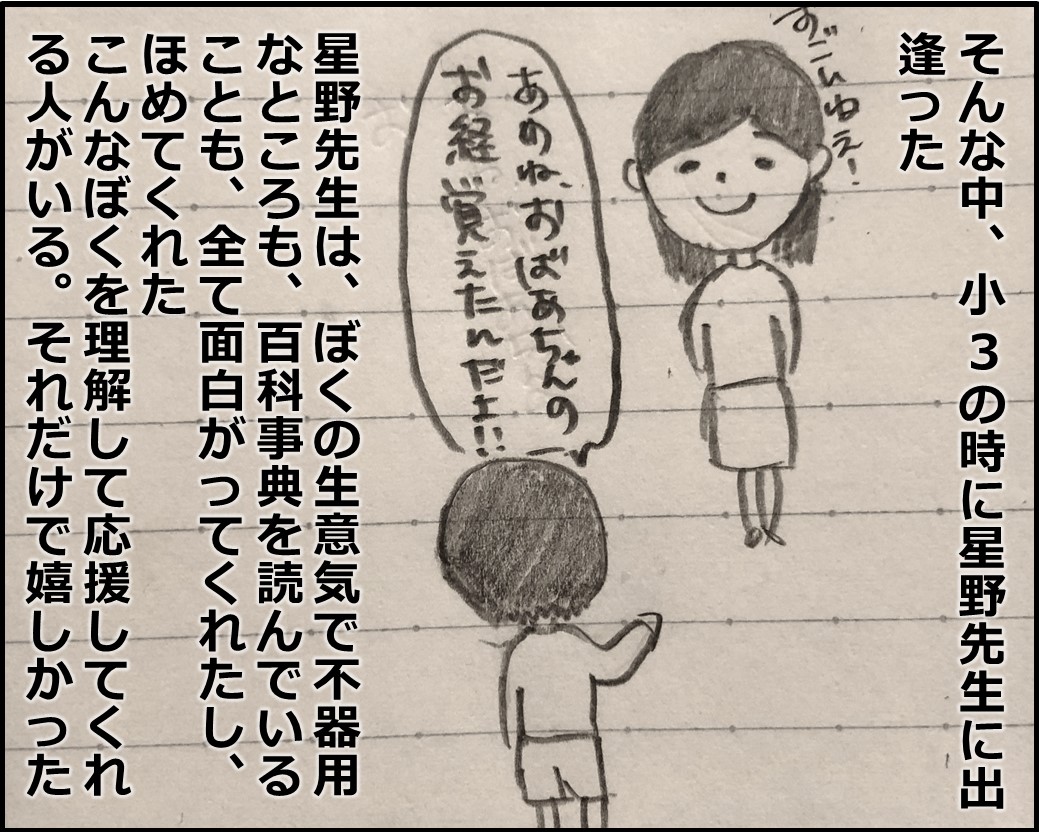 そんな中、小３の時に星野先生に出
逢った
すごいねえ！
あのね、おばあちゃんの
お経覚えたんだよ!!
星野先生は、ぼくの生意気で不器用
なところも、百科事典を読んでいる
ことも、全て面白がってくれたし、
ほめてくれた
こんなぼくを理解して応援してくれ
る人がいる。それだけで嬉しかった